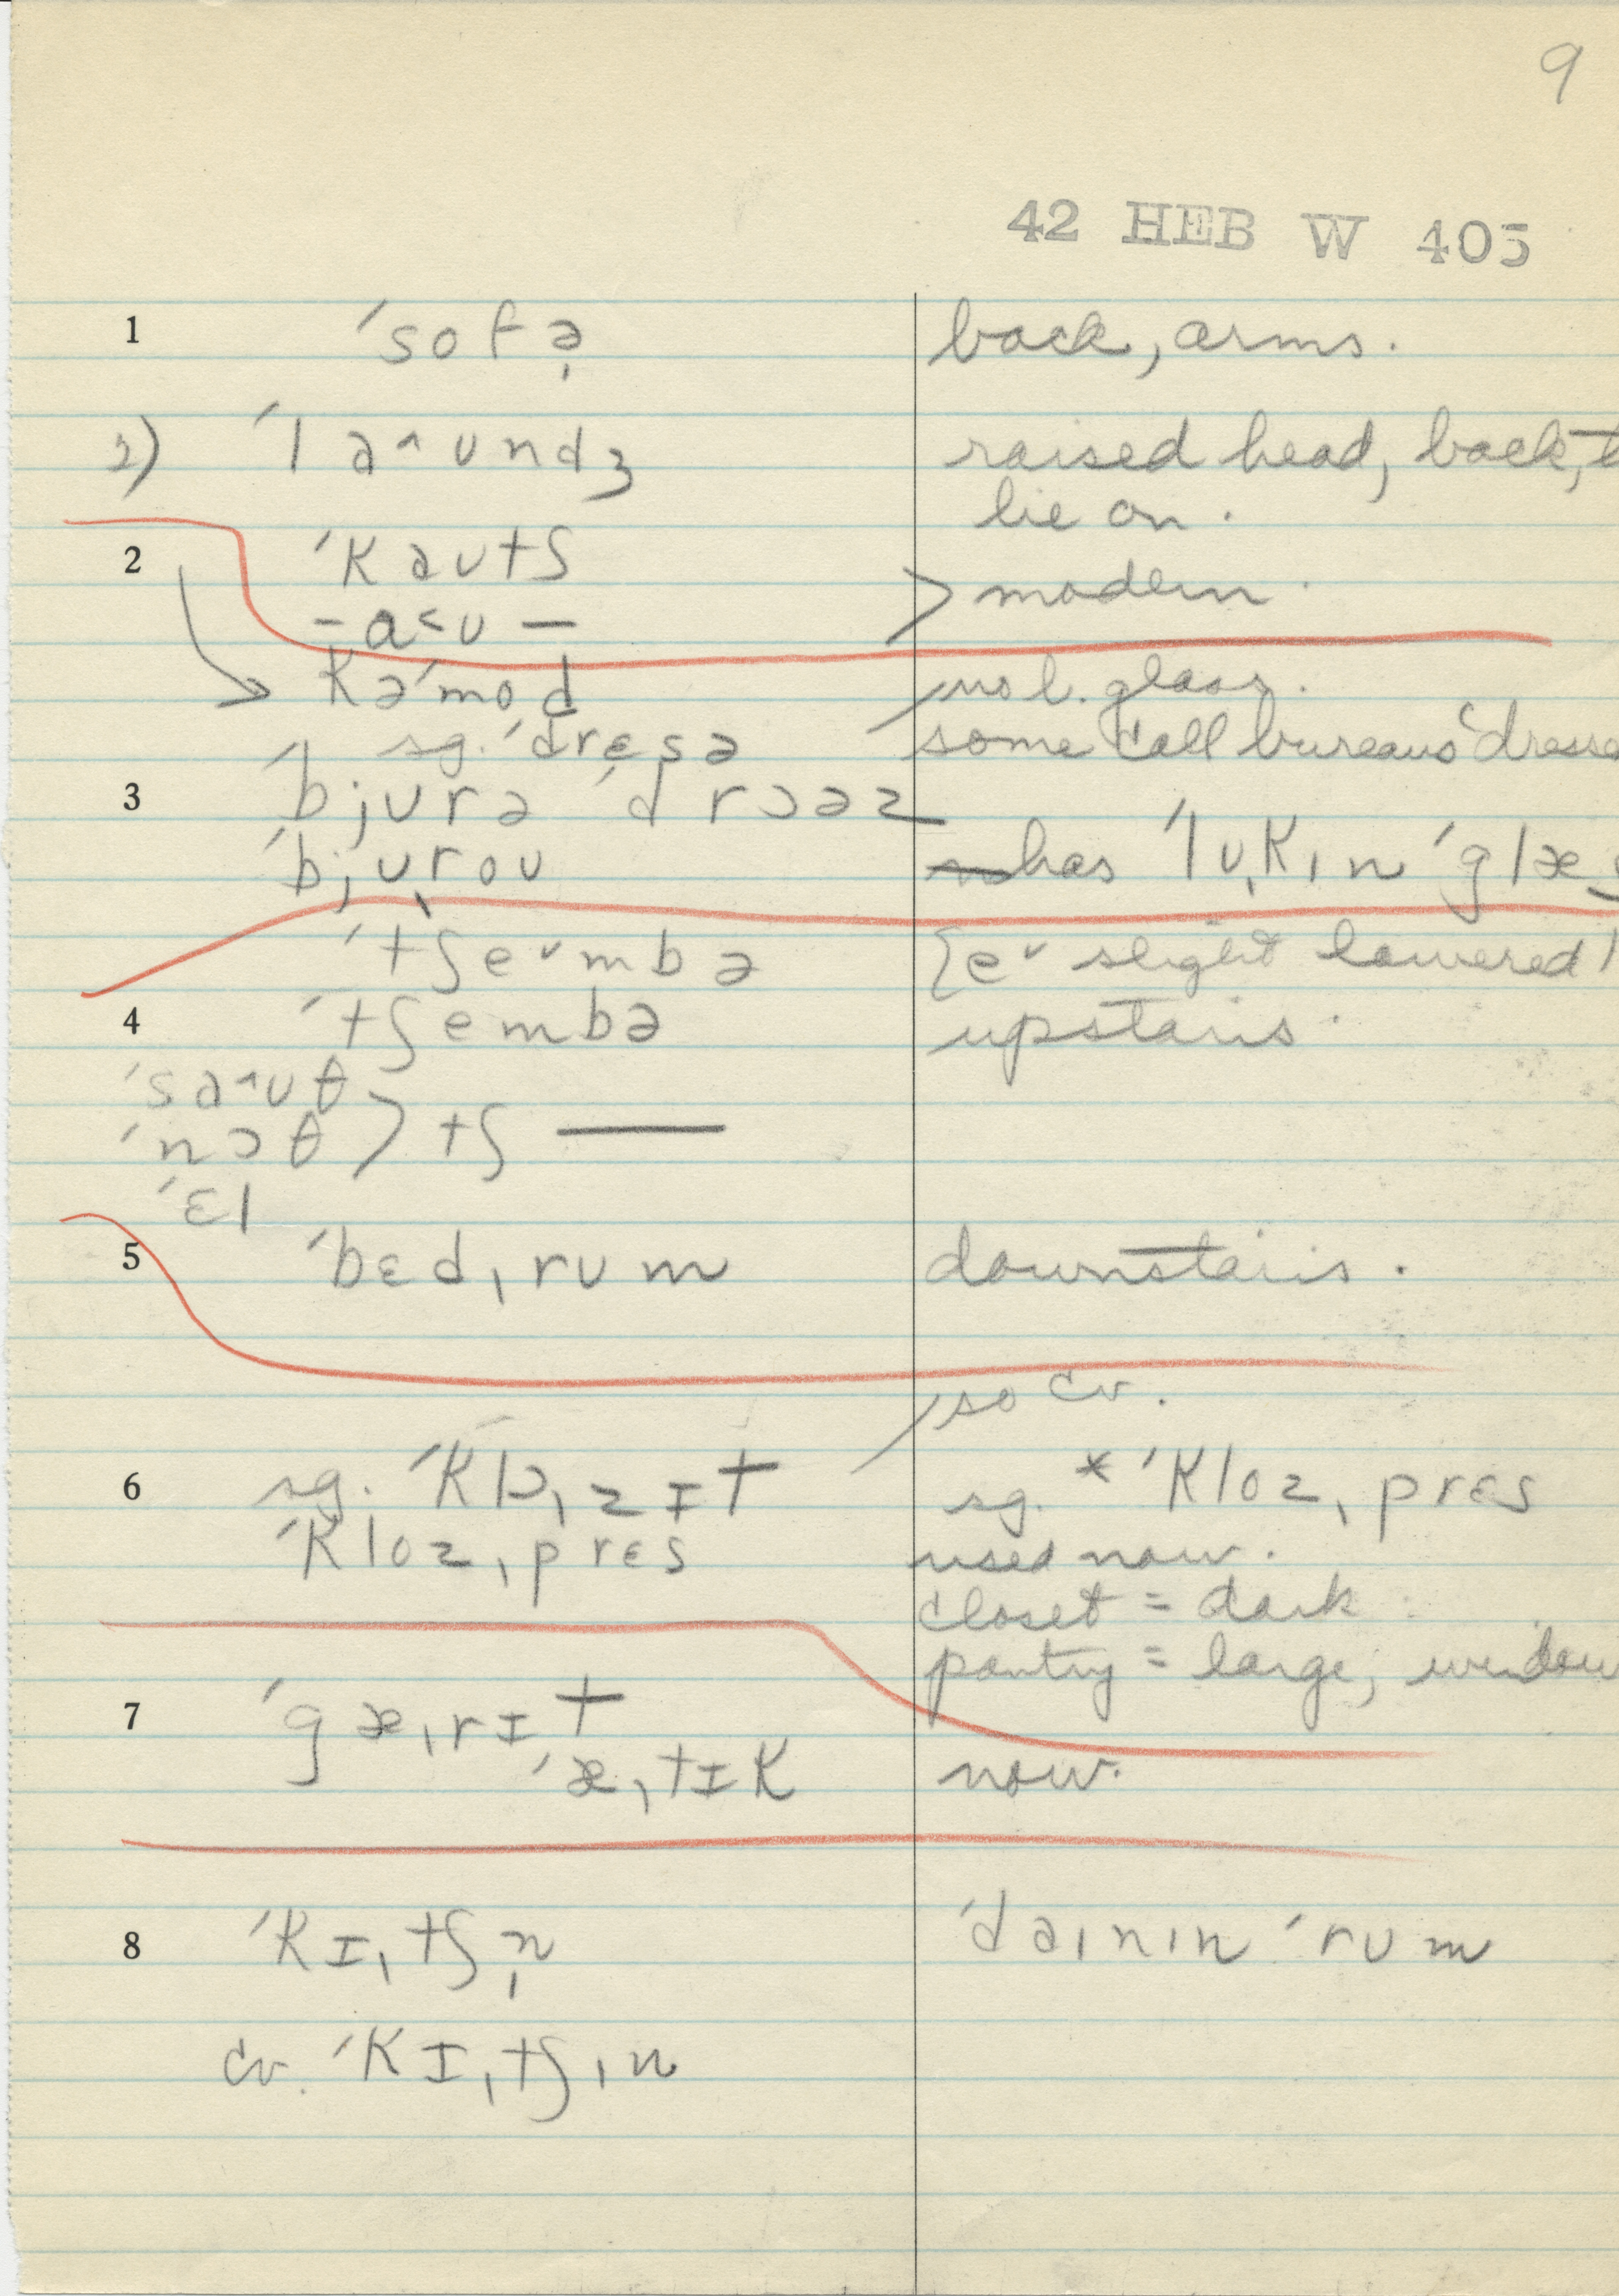 9
42 HEB W 405
1 ˈsofə̩ back, arms.
2) ˈlə^ʊndʒ raised head, back, t
lie on.
2 ˈkəʊtʃ
-a<ʊ- > modern.
kəˈmod no l. glass.
sg. ˈdrɛsə some call bureaus ˈdresse
3 ˈbjʊrə ˈdrɔəz
ˈbjʊˌroʊ has ˈlʊˌkɪn ˈglæs
ˈtʃe˅mbə [e˅ slight lowered]
4 ˈtʃembə upstairs.
ˈsə^ʊθ
ˈnɔθ > tʃ —
ˈɛl
5 ˈbɛdˌrʊm downstairs.
so cv.
6 sg. ˈklɒˌzɪt sg. *ˈklozˌprɛs
ˈklozˌprɛs used now.
closet = dark
pantry = large, window
7 ˈgæˌrɪt
ˈæˌtɪk now.
8 ˈkɪˌtʃn̩ ˈdaɪnɪn ˈrʊm
cv. ˈkɪˌtʃɪn